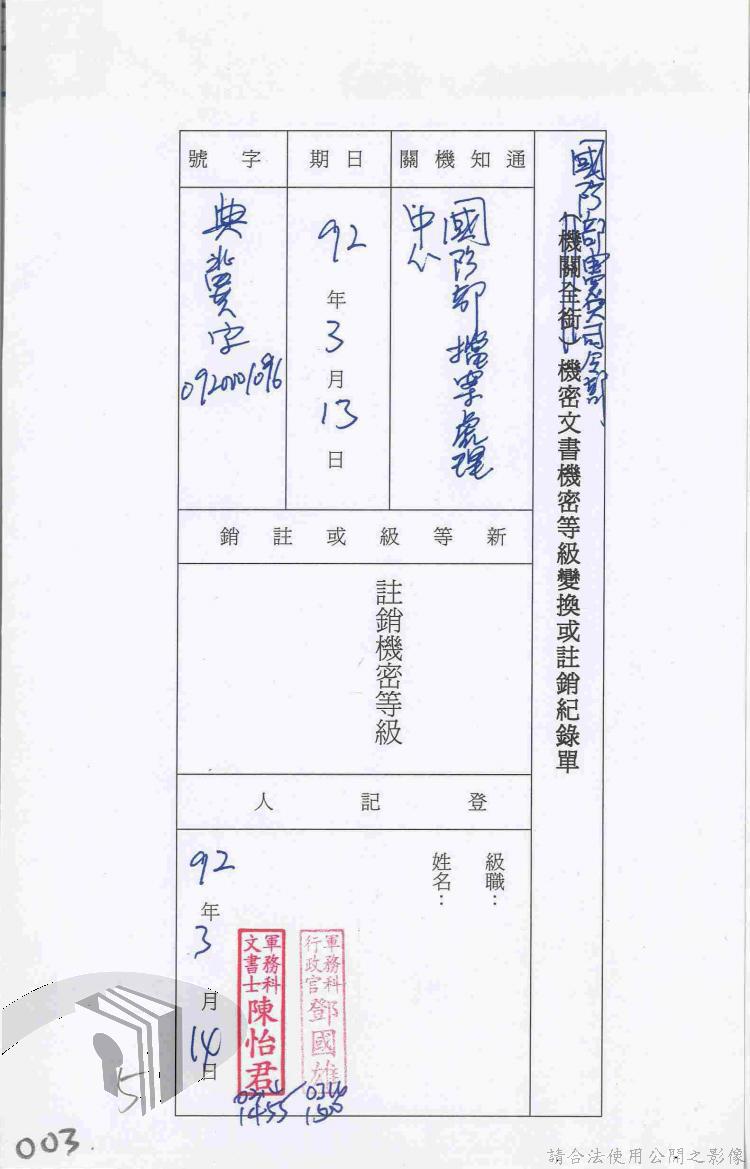 國防部憲兵司令部
(機關全銜)機密文書機密等級變換或註銷紀錄單
通知機關
國防部檔案處理
中心
日期
92年3月13日
字號
典賞字
新等級或註銷
註銷機密等級
登記人
級職：
姓名：
軍務科
行政官
鄧國雄
1500
軍務科
文書士
陳怡君
1455
92年3月14日
5
003
請合法使用公開之影像